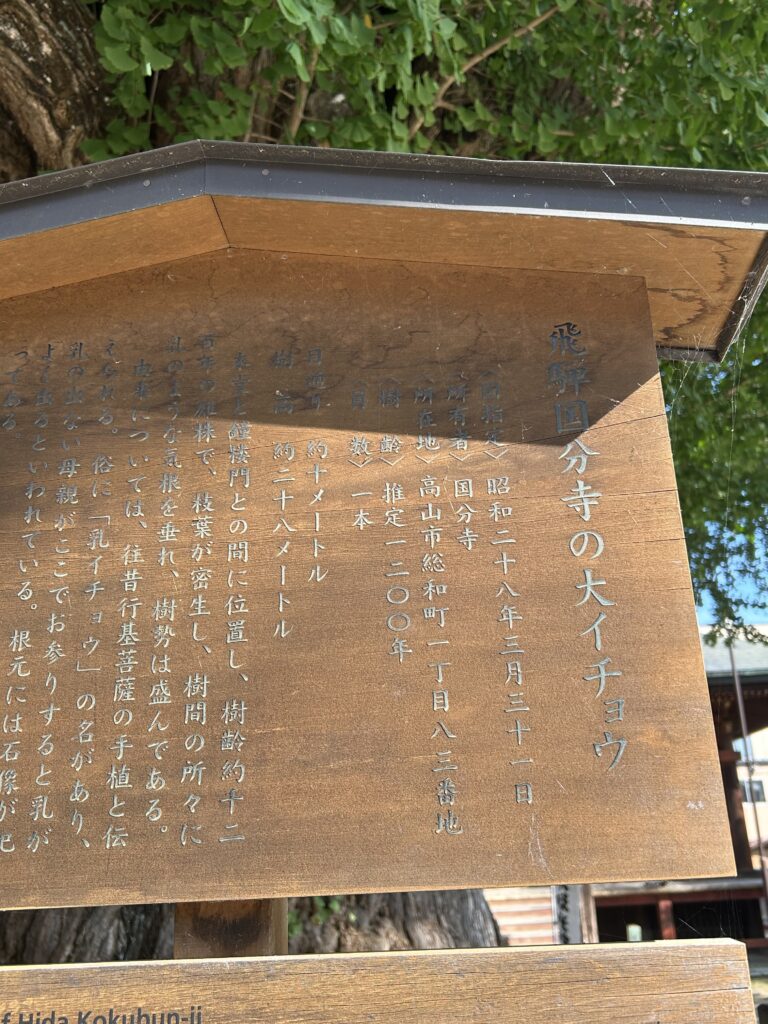 飛騨国分寺の大イチョウ
〈国指定〉 昭和二十八年三月三十一日
〈所有者〉 国分寺
〈所在地〉 高山市総和町一丁目八三番地
〈樹齢〉 推定一二〇〇年
〈員数〉 一本
目通り 約十メートル
樹高 約二十八メートル
本堂と鐘楼門との間に位置し、樹齢約千二
百年の雄株で、枝葉が密生し、樹間の所々に
乳のような気根を垂れ、樹勢は盛んである。
由来については、往昔行基菩薩の手植と伝
えられる。俗に「乳イチョウ」の名があり、
乳の出ない母親がここでお参りすると乳が
よく出るといわれている。根元には石像が祀
ってある。
f Hida Kokubun-ji